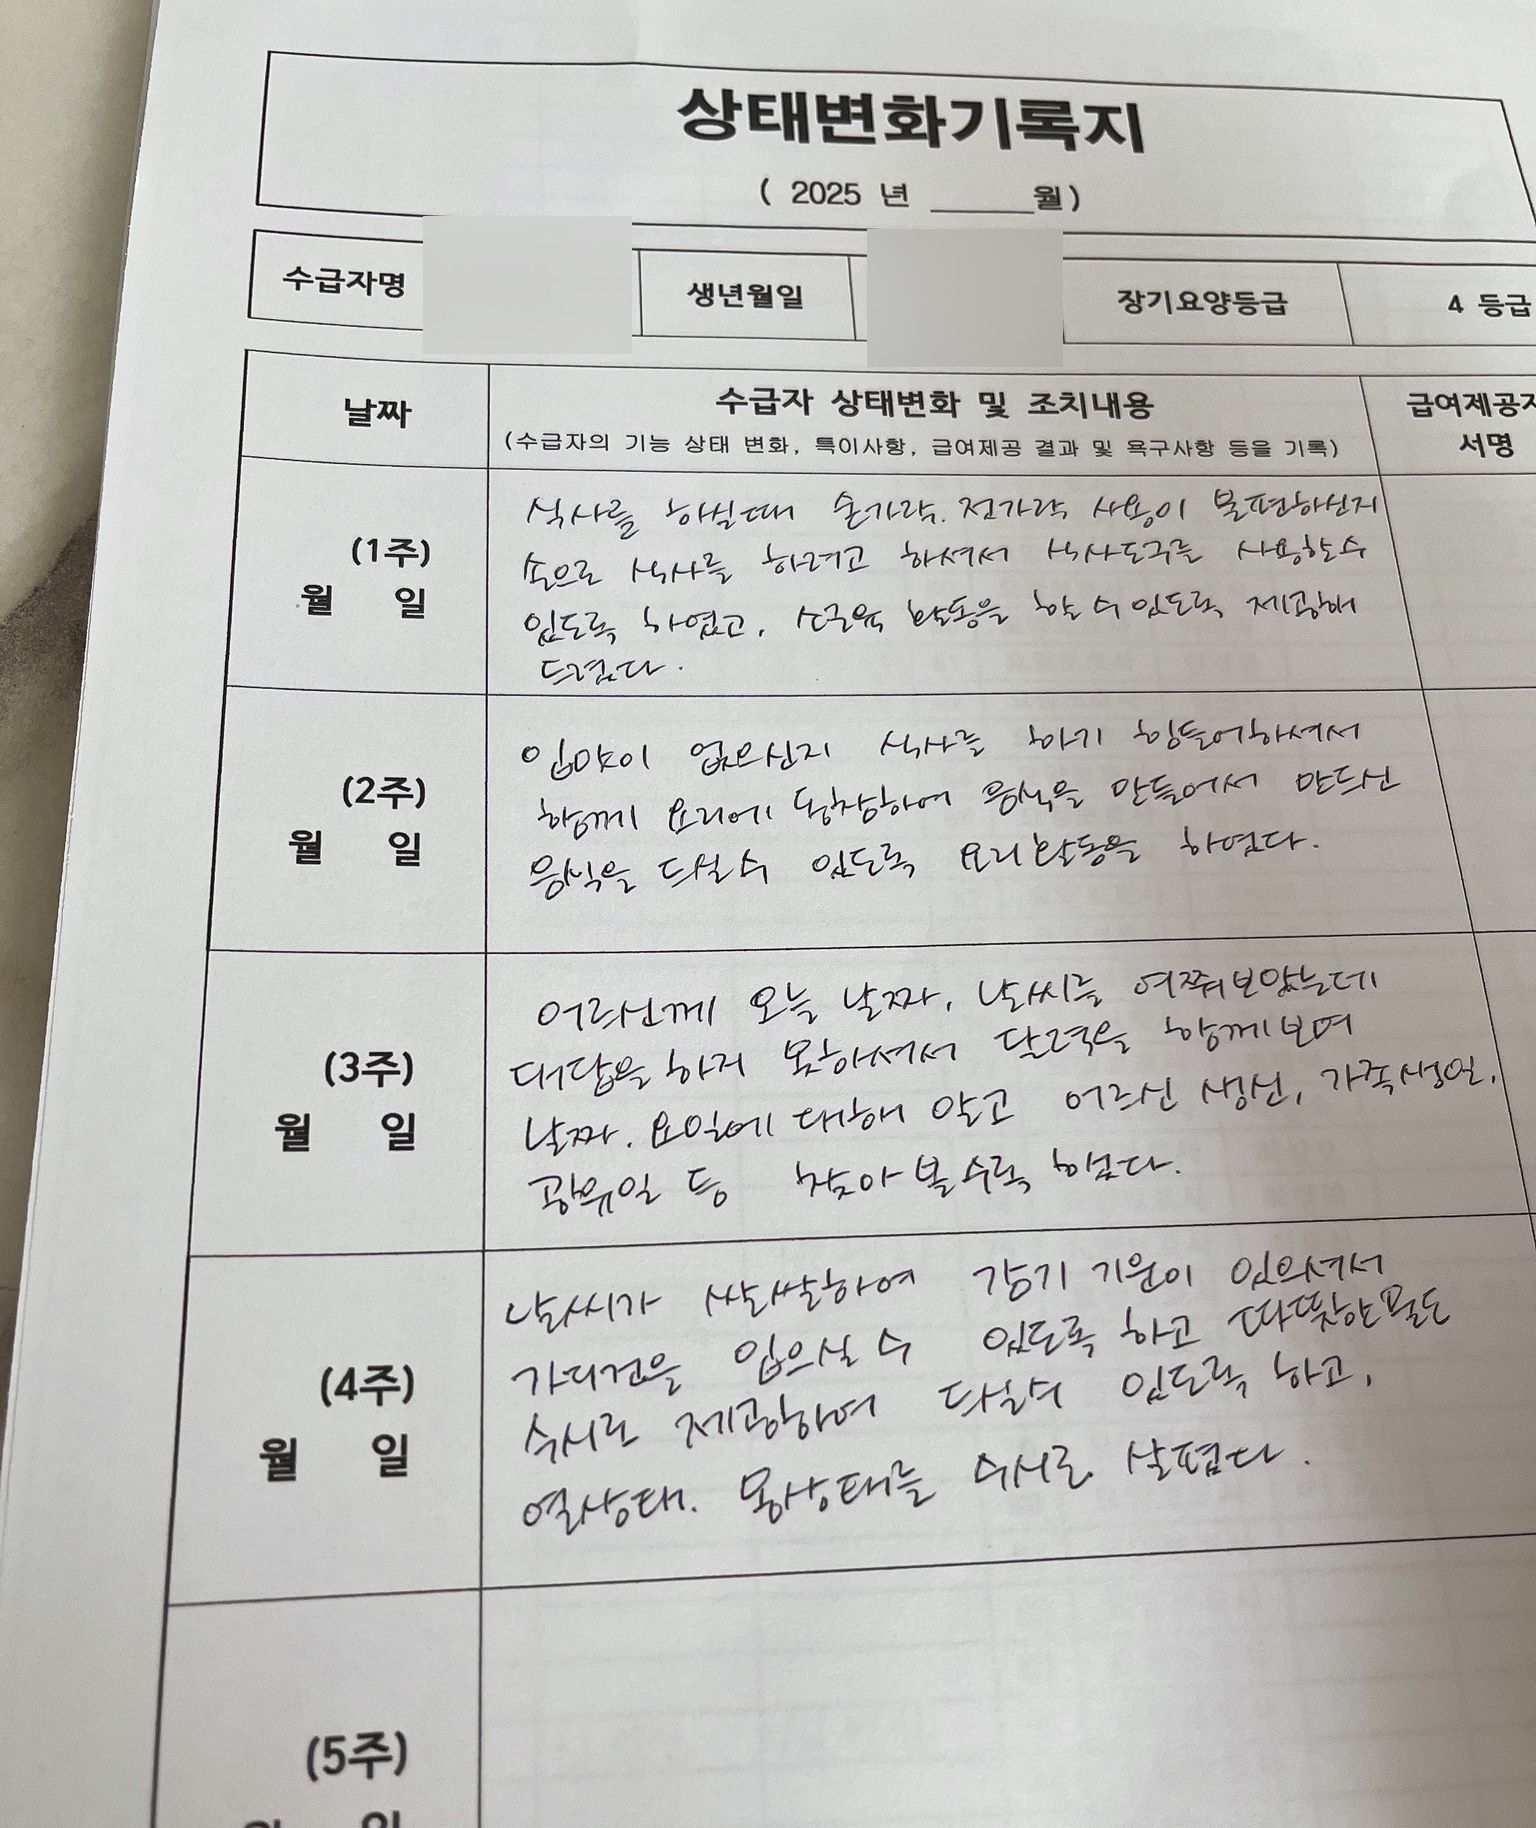 상태변화기록지
( 2025 년 ______월)
수급자명 생년월일 장기요양등급 4 등급
날짜 수급자 상태변화 및 조치내용 급여제공자
(수급자의 기능 상태 변화, 특이사항, 급여제공 결과 및 욕구사항 등을 기록) 서명
(1주)
월 일
식사를 하실때 숟가락. 젓가락 사용이 불편하신지
손으로 식사를 하려고 하셔서 식사도구를 사용할수
있도록 하였고, 소근육 활동을 할 수 있도록 제공해
드렸다.
(2주)
월 일
입맛이 없으신지 식사를 하기 힘들어하셔서
함께 요리에 동참하여 음식을 만들어서 만드신
음식을 드실 수 있도록 요리활동을 하였다.
(3주)
월 일
어르신께 오늘 날짜, 날씨를 여쭤보았는데
대답을 하지 못하셔서 달력을 함께보며
날짜. 요일에 대해 알고 어르신 생신, 가족생일,
공휴일 등 찾아 볼수록 했다.
(4주)
월 일
날씨가 쌀쌀하여 감기 기운이 있으셔서
가디건을 입으실 수 있도록 하고 따뜻한물도
수시로 제공하여 드실수 있도록 하고,
열상태. 몸상태를 수시로 살폈다.
(5주)
월 일